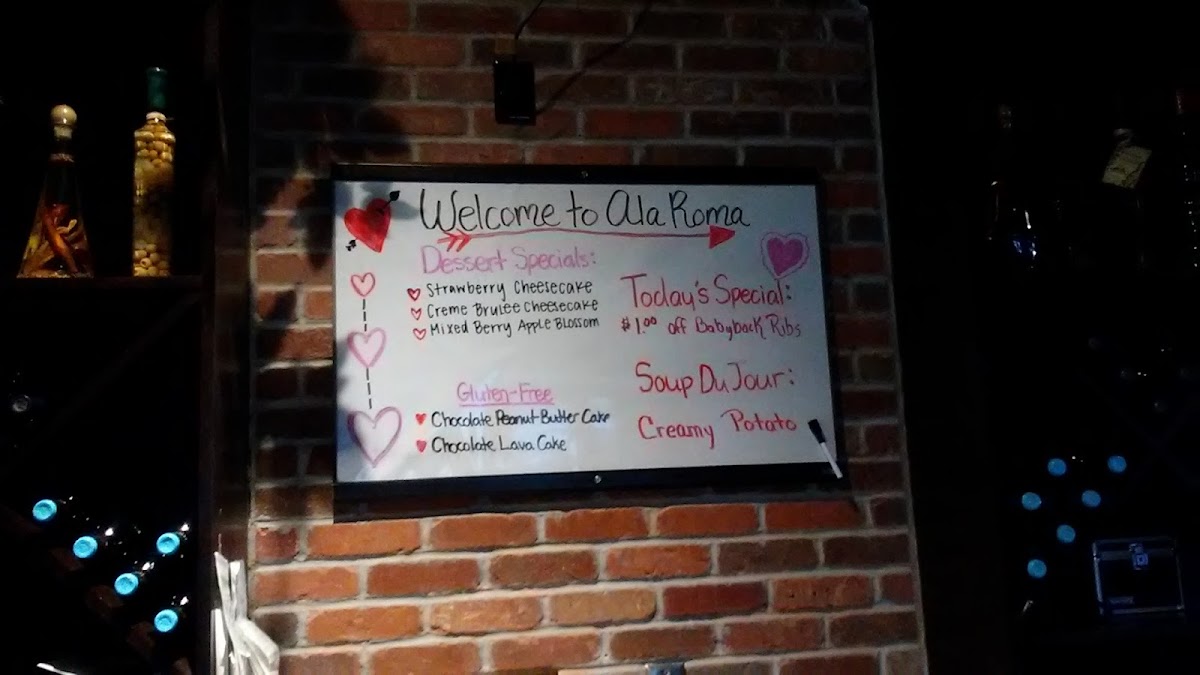 Welcome to Ala Roma
Dessert Specials:
Strawberry Cheesecake
Creme Brulee Cheesecake
Mixed Berry Apple Blossom
Gluten-Free
Chocolate Peanut Butter Cake
Chocolate Lava Cake
Today's Special:
$1.00 off Babyback Ribs
Soup Du Jour:
Creamy Potato